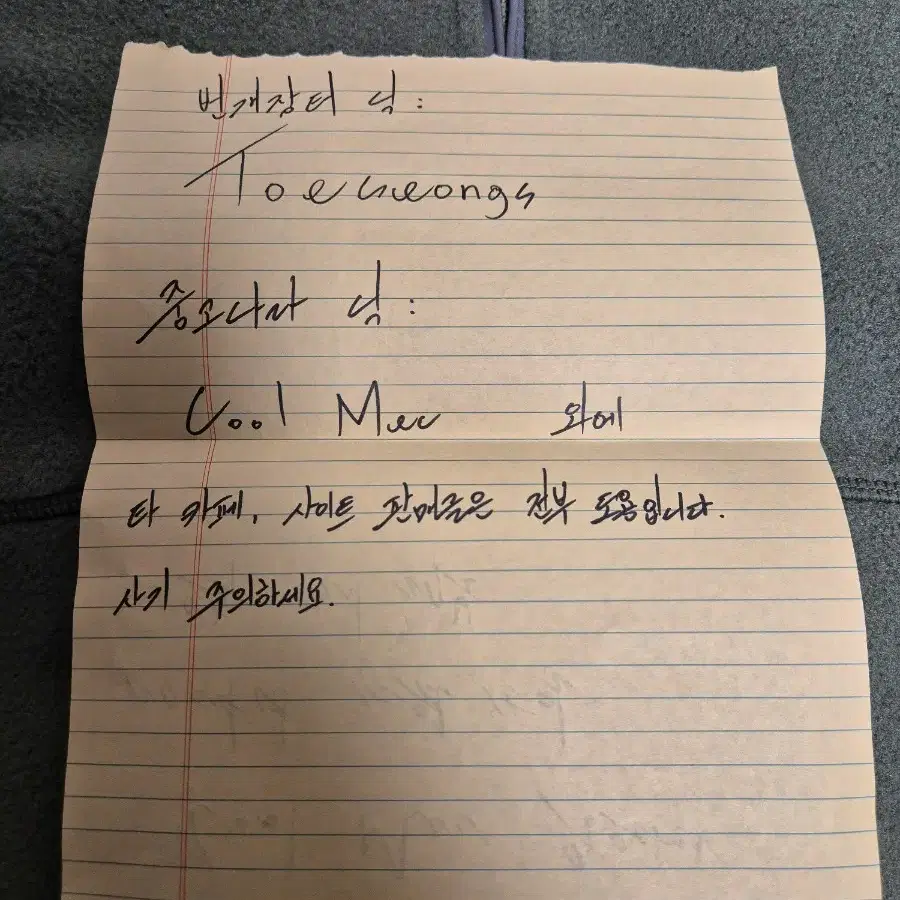 번개장터 닉 :
중고나라 닉 :
Cool Mec 외에
타 카페, 사이트 판매글은 전부 도용입니다.
사기 주의하세요.